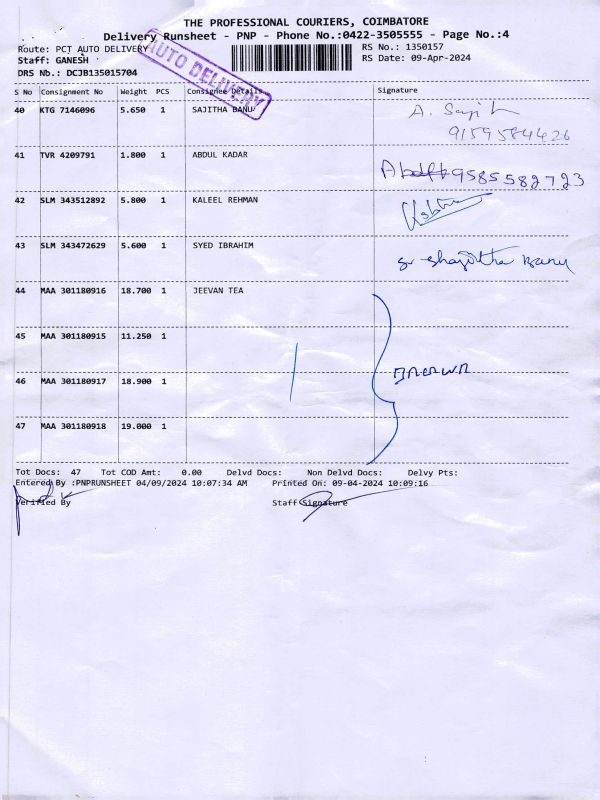 THE PROFESSIONAL COURIERS, COIMBATORE
Delivery Runsheet - PNP - Phone No.:0422-3505555 - Page No.:4
Route: PCT AUTO DELIVERY
RS No.: 1350157
Staff: GANESH
RS Date: 09-Apr-2024
DRS Nb.: DCJB135015704
AUTO DELIVERY
S No Consignment No Weight PCS Consignee Details Signature
40 KTG 7146096 5.650 1 SAJITHA BANU
9159584426
41 TVR 4209791 1.800 1 ABDUL KADAR
9585582723
42 SLM 343512892 5.800 1 KALEEL REHMAN
43 SLM 343472629 5.600 1 SYED IBRAHIM
44 MAA 301180916 18.700 1 JEEVAN TEA
45 MAA 301180915 11.250 1
46 MAA 301180917 18.900 1
47 MAA 301180918 19.000 1
Tot Docs: 47 Tot COD Amt: 0.00 Delvd Docs: Non Delvd Docs: Delvy Pts:
Entered By :PNPRUNSHEET 04/09/2024 10:07:34 AM Printed On: 09-04-2024 10:09:16
Verified By Staff Signature